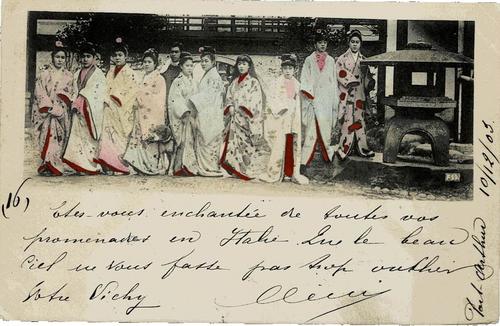 (16)
Etes-vous enchantée de toutes vos
promenades en Italie Que le beau
ciel ne vous fasse pas trop oublier
Votre Vichy
Port Arthur 10/12/03